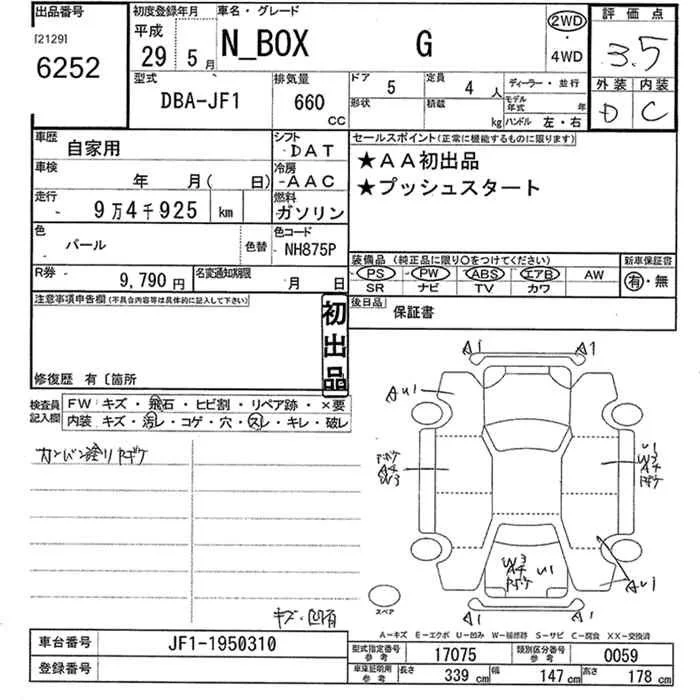 出品番号
[2129]
6252
初度登録年月
平成
29 5月
車名・グレード
N_BOX G
2WD
・
4WD
評価点
3.5
外装 内装
D C
型式
DBA-JF1
排気量
660
CC
ドア 5
定員 4 人
ディーラー・並行
形状
積載 kg
モデル年式 年
ハンドル 左・右
車歴 自家用
シフト
DAT
車検 年 月( 日)
冷房
AAC
走行 9万4千925 km
燃料
ガソリン
色 パール
色替
色コード
NH875P
R券 9,790円
名変通知期限 月 日
セールスポイント(正常に機能するものに限ります)
★AA初出品
★プッシュスタート
装備品(純正品に限り○をつけてください)
PS PW ABS エアB AW
SR ナビ TV カワ
新車保証書
有・無
後日品
保証書
注意事項申告欄(不具合内容等は具体的に記入して下さい)
初出品
修復歴 有〔箇所
検査員記入欄
FW キズ・飛石・ヒビ割・リペア跡・×要
内装 キズ・汚レ・コゲ・穴・スレ・キレ・破レ
カンバン塗りトボケ
キズ・凹有
A1 A1
AU1
トボケ
A4
W3
U1
W3
A4
トボケ
W3
A4
トボケ
U1
AU1
スペア
A-キズ E-エクボ U-凹み W-補修跡 S-サビ C-腐食 XX-交換済
車台番号 JF1-1950310
登録番号
型式指定番号
参考
17075
類別区分番号
参考
0059
車庫証明用
参考
長さ 339 cm
幅 147 cm
高さ 178 cm